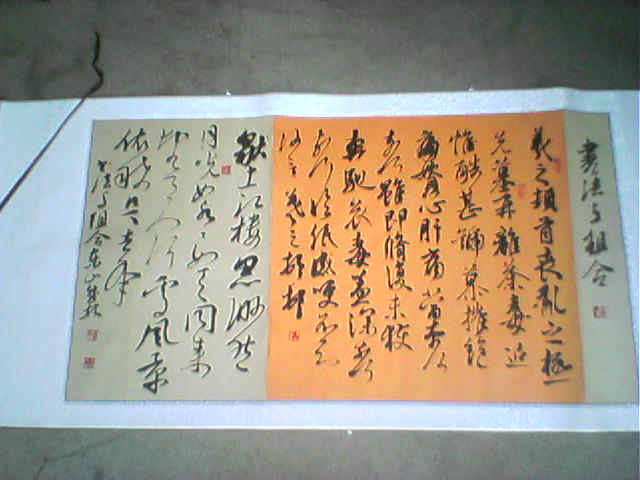 書法与组合
羲之頓首喪亂之極
先墓再離荼毒追
惟酷甚號慕摧絕
痛貫心肝痛當奈何
奈何雖即脩復未獲
奔馳哀毒益深奈何
奈何臨紙感哽不知
何言羲之頓首頓首
獨上江樓思渺然
月光如水水如天同来
望月人何处風景
依稀似去年
书法与组合